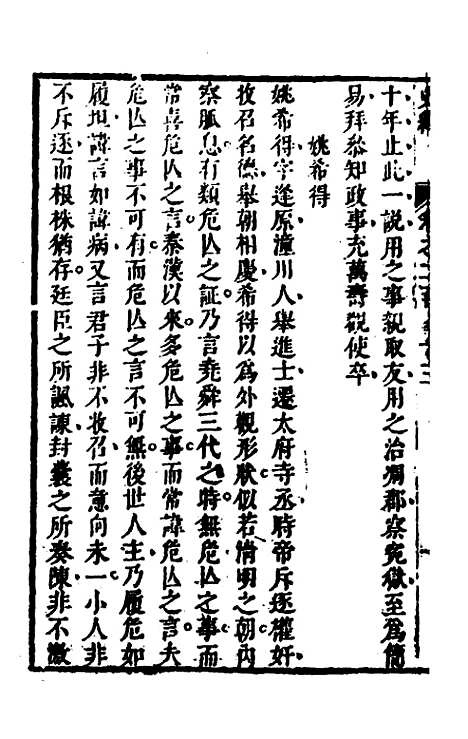 十年止此一說用之事親取友用之治凋郡察寃獄至爲簡
易拜叅知政事充萬壽觀使卒
姚希得
姚希得字逢原潼川人舉進士遷太府寺丞時帝斥逐權奸
收召名德舉朝相慶希得以爲外觀形狀似若清明之朝內
察脈息有類危亾之証乃言堯舜三代之時無危亾之事而
常喜危亾之言秦漢以來多危亾之事而常諱危亾之言夫
危亾之事不可有而危亾之言不可無後世人主乃履危如
履坦諱言如諱病又言君子非不收召而意向未一小人非
不斥逐而根株猶存廷臣之所諷諫封囊之所奏陳非不激